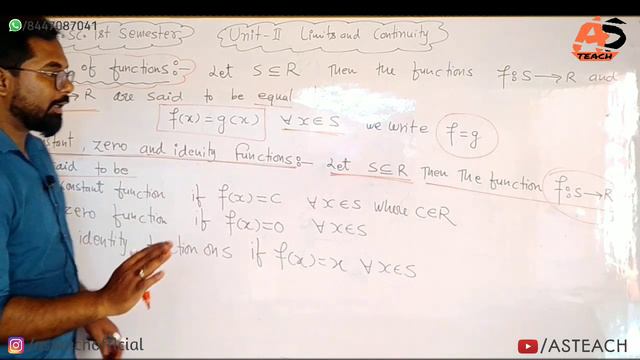 8447087041
Sc. 1st Semester Unit-II Limits and Continuity
AS
TEACH
of functions:- Let S⊆R Then the functions f:S→R and
→R are said to be equal
f(x)=g(x) ∀x∈S we write f=g
stant, zero and idenity functions:- Let S⊆R Then the function f:S→R
said to be
constant function if f(x)=C ∀x∈S where C∈R
zero function if f(x)=0 ∀x∈S
identity if f(x)=x ∀x∈S
/ASTEACH